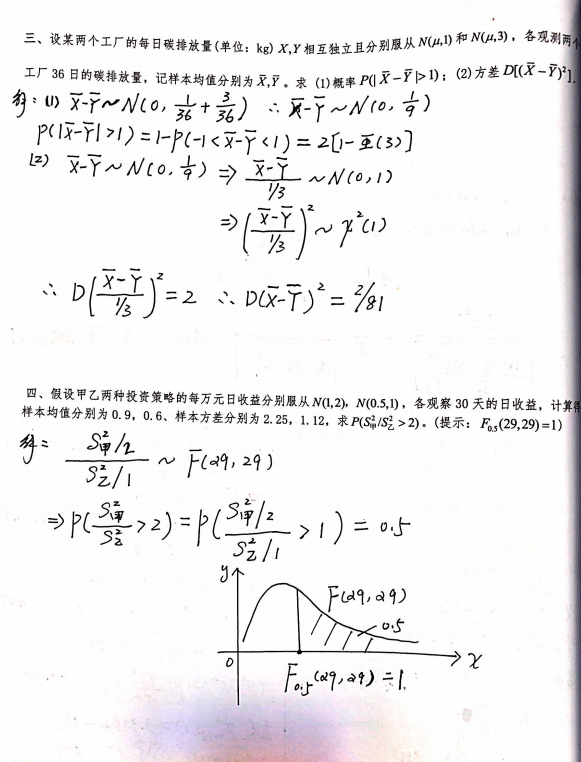 三、设某两个工厂的每日碳排放量(单位：kg) X,Y 相互独立且分别服从 N(μ,1) 和 N(μ,3)，各观测两个
工厂 36 日的碳排放量，记样本均值分别为 X̅,Y̅。求 (1)概率 P(| X̅−Y̅ |>1)；(2)方差 D[(X̅−Y̅)²].
解：(1) X̅-Y̅ ~ N(0, 1/36 + 3/36) ∴ X̅-Y̅ ~ N(0, 1/9)
P(|X̅-Y̅|>1) = 1-P(-1<X̅-Y̅<1) = 2[1-Φ(3)]
(2) X̅-Y̅ ~ N(0, 1/9) ⇒ (X̅-Y̅)/(1/3) ~ N(0,1)
⇒ ((X̅-Y̅)/(1/3))² ~ χ²(1)
∴ D((X̅-Y̅)/(1/3))² = 2 ∴ D(X̅-Y̅)² = 2/81
四、假设甲乙两种投资策略的每万元日收益分别服从 N(1,2)，N(0.5,1)，各观察 30 天的日收益，计算得
样本均值分别为 0.9，0.6、样本方差分别为 2.25，1.12，求 P(S²甲/S²乙 > 2)。(提示： F₀.₅(29,29)=1)
解： (S²甲/2)/(S²乙/1) ~ F(29,29)
⇒ P(S²甲/S²乙 > 2) = P((S²甲/2)/(S²乙/1) > 1) = 0.5
y
F(29,29)
0.5
0
x
F₀.₅(29,29) = 1.